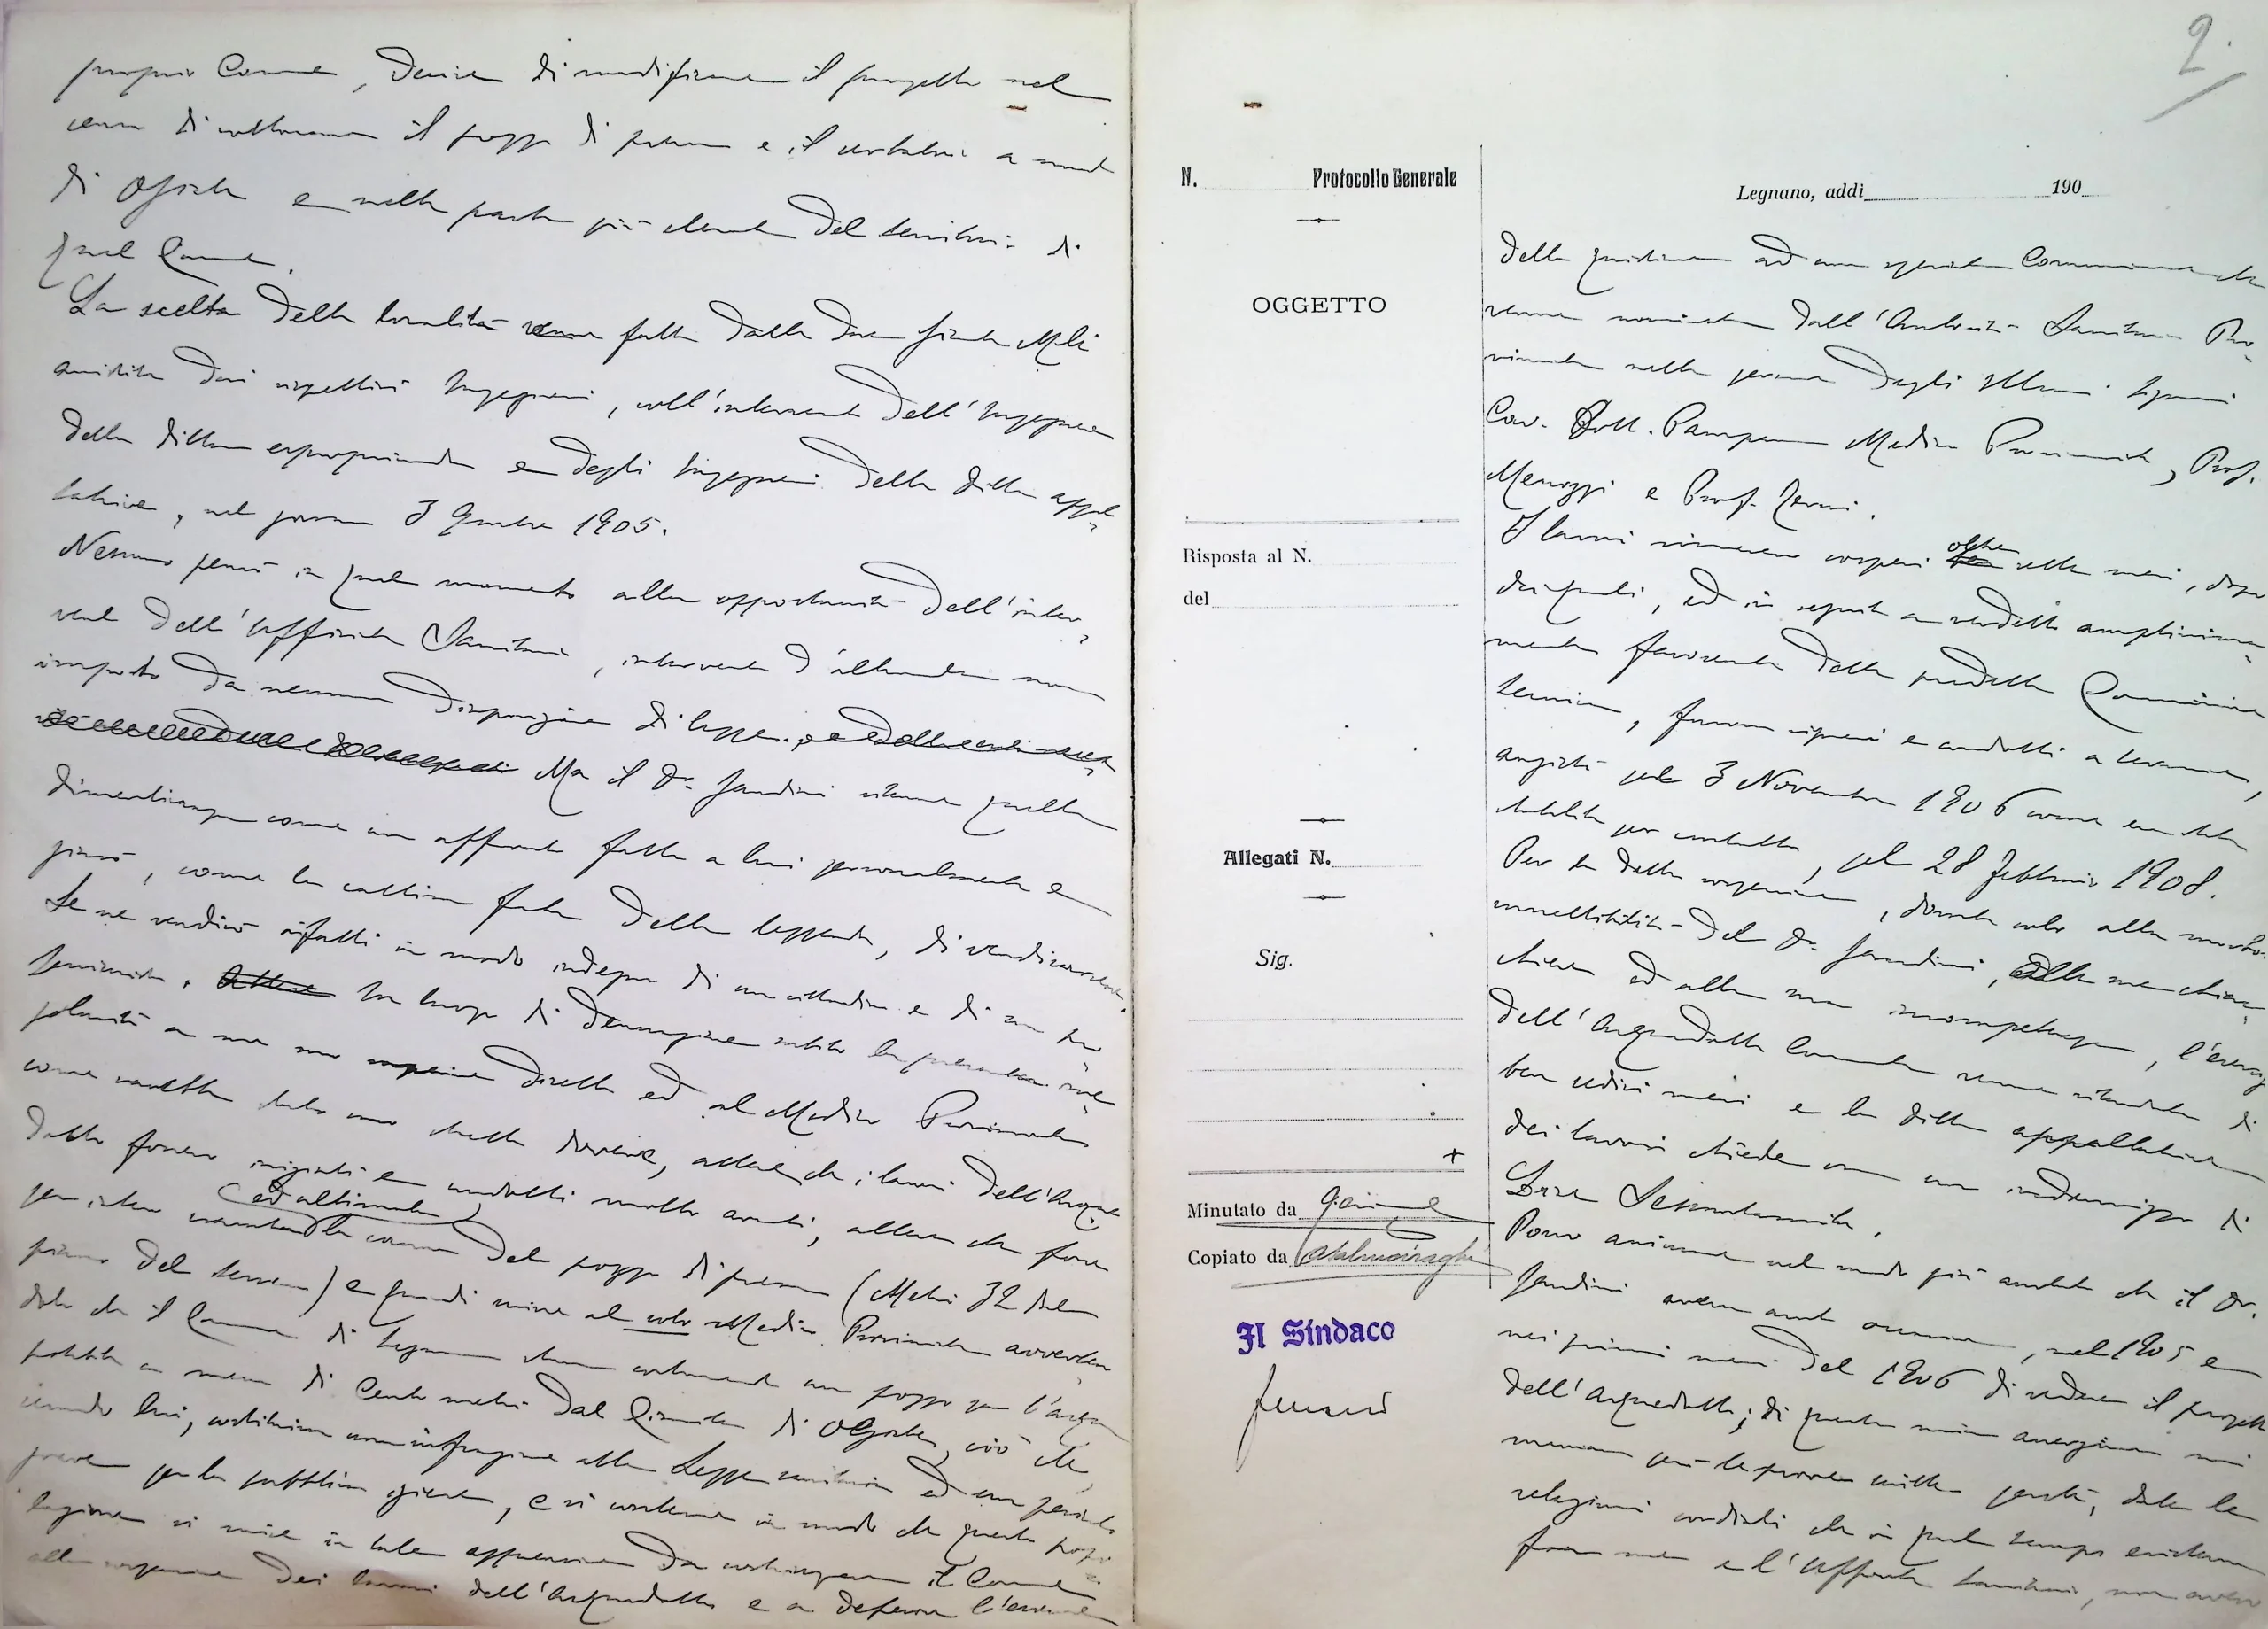 proprio Comune, decise di modificare il progetto nel
senso di collocare il pozzo di presa e il serbatoio a nord
di Olgiate e nella parte più elevata del territorio di
quel Comune.
La scelta della località venne fatta dalle due Giunte Mli
assistite dai rispettivi Ingegneri, coll'intervento dell'Ingegnere
della ditta exproprianda e degli Ingegneri della ditta appal-
tatrice, nel giorno 3 9mbre 1905.
Nessuno pensò in quel momento alla opportunità dell'inter-
vento dell'Ufficiale Sanitario, intervento d'altronde non
imposto da nessuna disposizione di legge.
Ma il Dr. Jandini ritenne quella
dimenticanza come un affronto fatto a lui personalmente e
giurò, come la cattiva fata della leggenda, di vendicarsene.
Se ne vendicò infatti in modo indegno di un cittadino e di un fun-
zionario. In luogo di denunziare subito la
a me suo superiore diretto ed al Medico Provinciale
come sarebbe stato suo stretto dovere, attese che i lavori dell'Acque-
dotto fossero iniziati e condotti molto avanti, attese che fosse
per intero ed ultimata la canna del pozzo di presa (Metri 32 dal
piano del terreno) e quindi scrisse al solo Medico Provinciale avverten-
dolo che il Comune di Legnano stava costruendo un pozzo per l'acqua
potabile a meno di Cento metri dal Cimitero di Olgiate, ciò che,
secondo lui, costituiva una infrazione alla Legge sanitaria ed un pericolo
grave per la pubblica igiene, e si contenne in modo che questa popo-
lazione si mise in tale apprensione da costringere il Comune
alla sospensione dei lavori dell'Acquedotto e a deferire l'esame
2.
N. Protocollo Generale
Legnano, addi 190
OGGETTO
Risposta al N.
del
Allegati N.
Sig.
Minutato da
Copiato da
Il Sindaco
della quistione ad una speciale Commissione che
venne nominata dall'Autorità Sanitaria Pro-
vinciale nelle persone degli Illmi Signori
Cav. Dott. Medico Provinciale, Prof.
Menozzi e Prof. Zerni.
I lavori rimasero sospesi oltre sette mesi, dopo
dei quali, ed in seguito a verdetto amplissima-
mente favorevole della predetta Commissione
tecnica, furono ripresi e condotti a termine,
anziché pel 3 Novembre 1906 come era stato
stabilito per contratto, pel 28 Febbraio 1908.
Per la detta sospensione, dovuta solo alla morbosa
suscettibilità del Dr. Jandini, alla
ed alla sua incompetenza, l'eserc.
dell'Acquedotto Comunale venne ritardato di
ben sedici mesi e la ditta appaltatrice
dei lavori chiede ora un indennizzo di
Lire Sessantamila.
Posso assicurare nel modo più assoluto che il Dr.
Jandini aveva avuto occasione, nel 1905 e
nei primi mesi del 1906 di vedere il progetto
dell'Acquedotto; di questa mia asserzione mi
mancano però le prove scritte perché, date le
relazioni cordiali che in quel tempo esistevano
fra me e l'Ufficiale Sanitario, non avevo